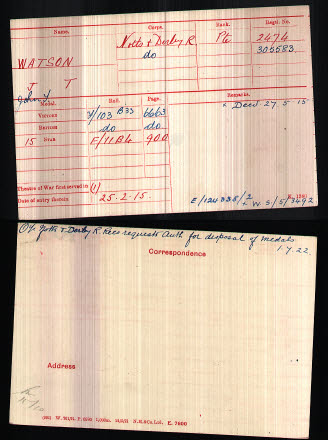 Name. Corps. Rank. Regtl. No.
WATSON Notts & Derby R Pte 2474
do 305583
J T
John Y
Medal. Roll. Page. Remarks.
Victory H/103 B33 6663 Dced 27.5.15
British do do
15 Star E/11 B6 900
Theatre of War first served in (1)
Date of entry therein 25-2-15. K. 1380
E/1240335/2
W.S/5/3492
O/c Notts & Derby R. Recs requests Auth for disposal of medals
1.7.22.
Correspondence
Address
E. 7600